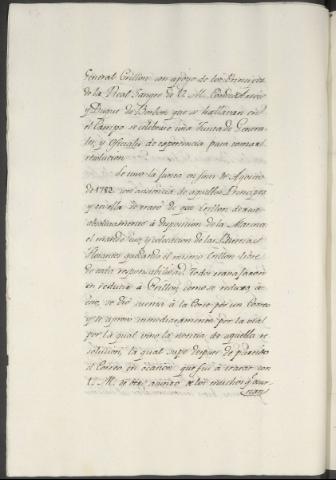 General Crillon con apoyo de los Principes
de la Real Sangre de S. M. Conde Artois
y Duque de Borbon que se hallavan en
el Campo se celebrase una Junta de Genera-
les y Oficiales de experiencia para tomar la
resolucion
Se tuvo la Junta en fines de Agosto
de 1782 con asistencia de aquellos Principes
y en ella se trató de que Crillon dexase
absolutamente á disposicion de la Marina
el mando, uso, y colocacion de las Baterias
flotantes quedando el mismo Crillon libre
de esta responsabilidad. Todos
en reducir á Crillon, como se reduxo
se dió cuenta á la Corte por un Correo
y se aprovó inmediatamente por la
por la qual vino la noticia de aquella re-
solucion, la qual supe despues de partido
el Correo en ocasion que fuí á tratar con
S. M. de otro asunto de los muchos que